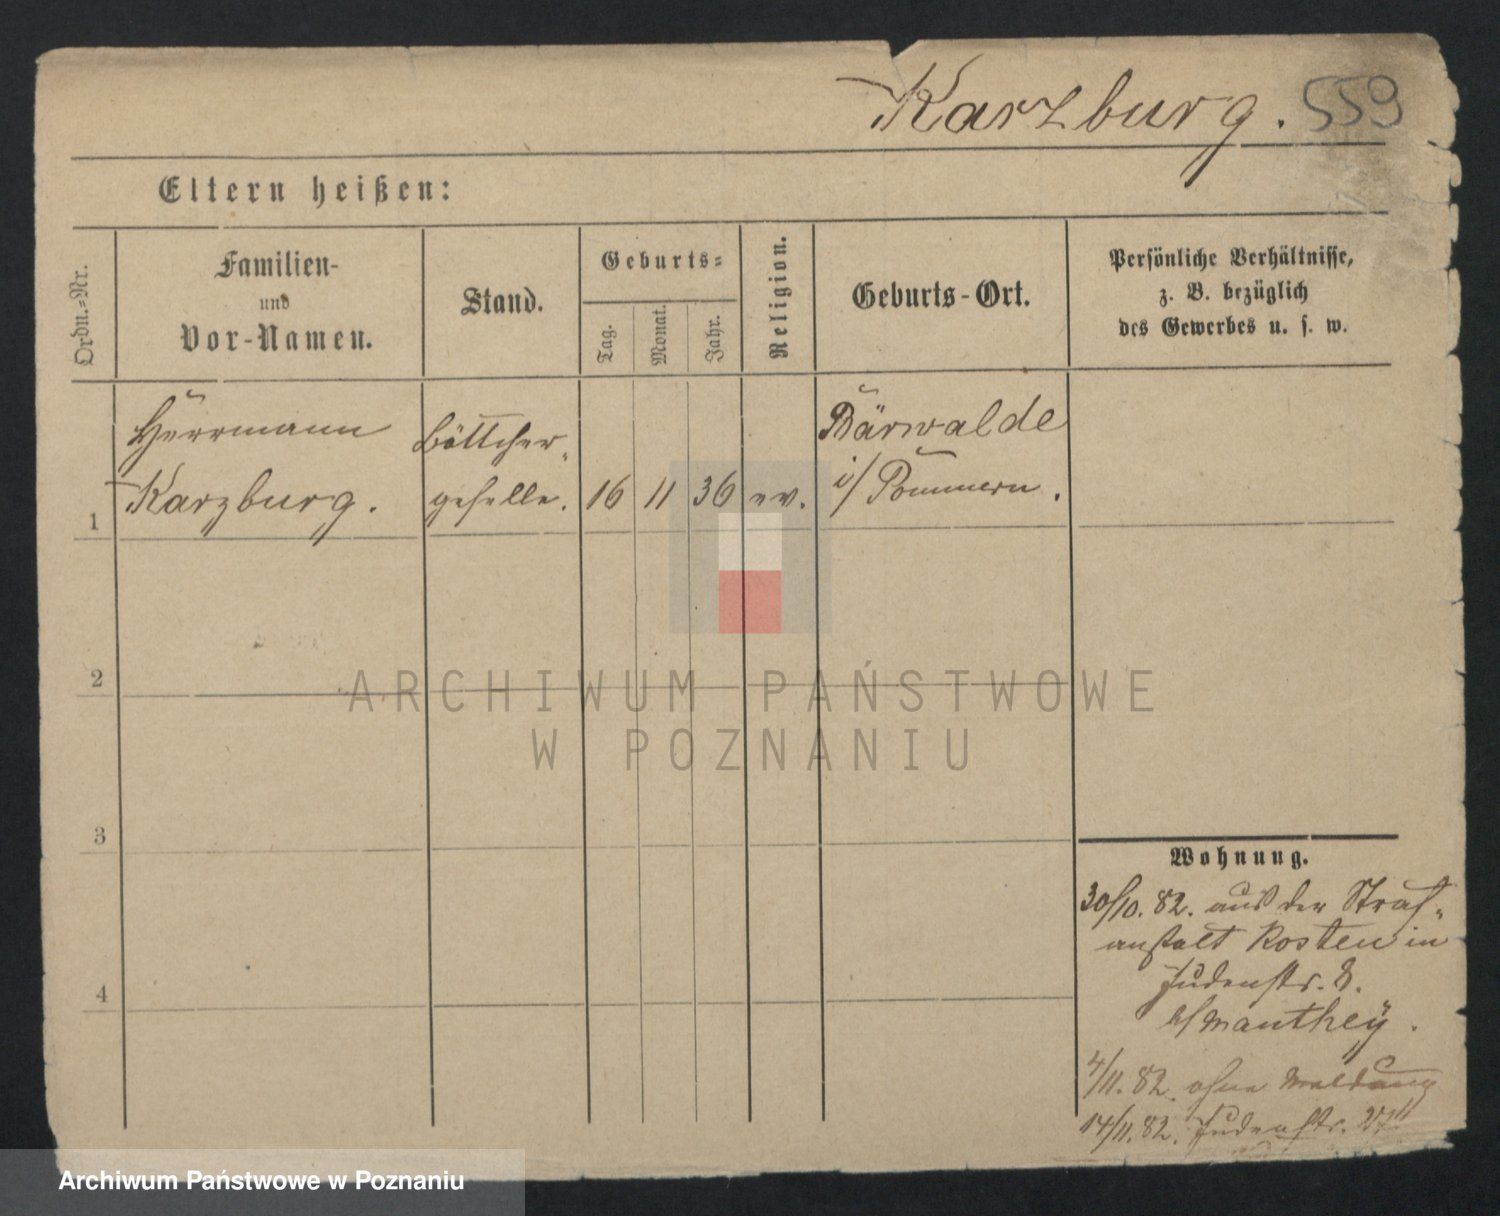 Karzburg. 559
Eltern heißen:
Ordn.-Nr.
Familien-
und
Vor-Namen.
Stand.
Geburts-
Tag.
Monat.
Jahr.
Religion.
Geburts-Ort.
Persönliche Verhältnisse,
z. B. bezüglich
des Gewerbes u. s. w.
1
Herrmann
Karzburg.
Böttcher-
geselle.
16 11 36 ev.
Bärwalde
i/Pommern.
2
3
4
Wohnung.
30/10. 82. aus der Straf-
anstalt Kosten in
Judenstr. 8.
b/Manthey.
4/11. 82. ohne Meldung
14/11. 82. Judenstr.
ARCHIWUM PAŃSTWOWE
W POZNANIU
Archiwum Państwowe w Poznaniu